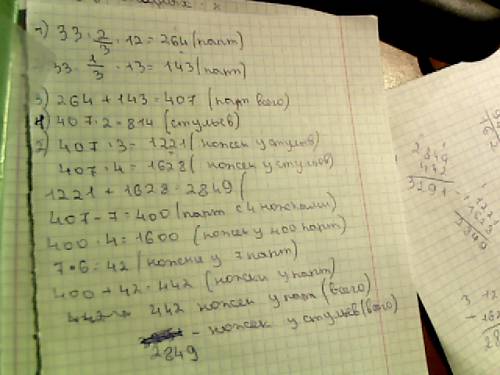 1) 33 · 2/3 · 12 = 264 (парт)
33 · 1/3 · 13 = 143 (парт)
3) 264 + 143 = 407 (парт всего)
4) 407 · 2 = 814 (стульев)
407 · 3 = 1221 (ножек у стульев)
407 · 4 = 1628 (ножек у стульев)
1221 + 1628 = 2849 (
407 - 7 = 400 (парт с 4 ножками)
400 · 4 = 1600 (ножек у 400 парт)
7 · 6 = 42 (ножки у 7 парт)
400 + 42 = 442 (ножки у парт)
442 ножек у парт (всего)
- ножек у стульев (всего)
2849
2849
442
3291